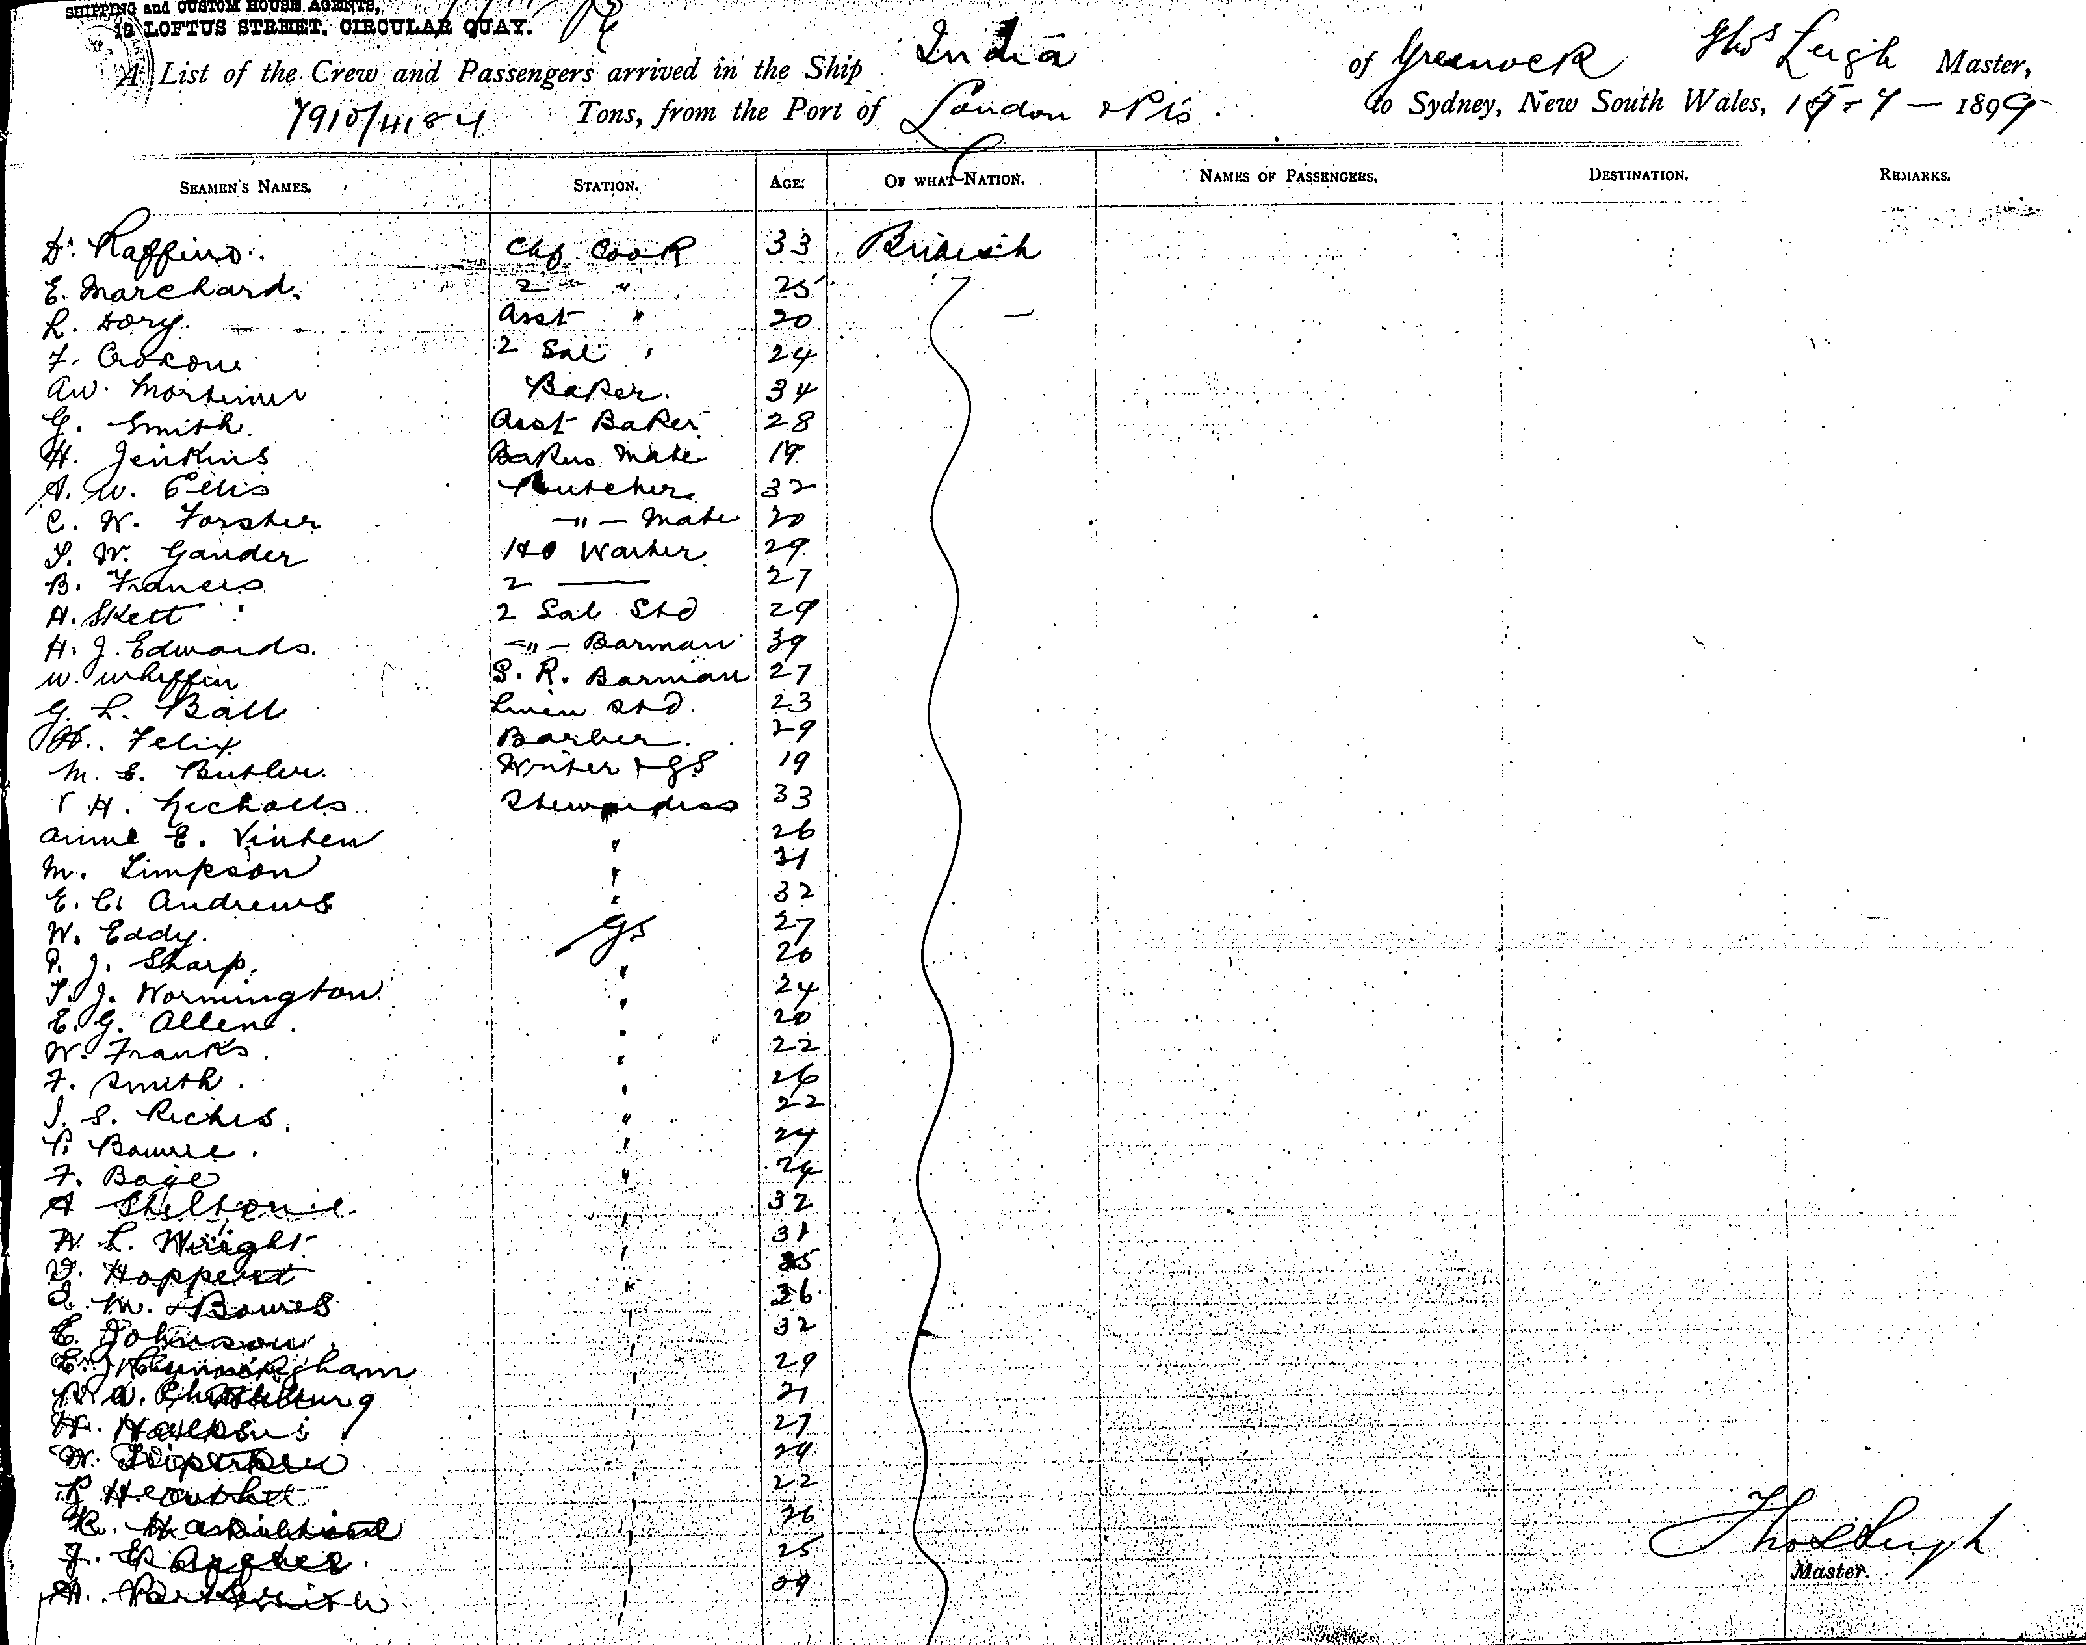 SHIPPING and CUSTOM HOUSE AGENTS,
19 LOFTUS STREET, CIRCULAR QUAY.
A List of the Crew and Passengers arrived in the Ship India of Greenock Thos Leigh Master,
7910/4184 Tons, from the Port of London & Pts. to Sydney, New South Wales, 7 - 1899
SEAMEN'S NAMES. STATION. AGE. OF WHAT NATION. NAMES OF PASSENGERS. DESTINATION. REMARKS.
D. Raffino. Chf Cook 33 British
E. Marchard. 2 " " 25
L. Dory. Asst " 20
F. 2 Sal " 24
AW. Mortimer Baker. 34
G. Smith. Asst Baker 28
H. Jenkins Bakers Mate 19
A. W. Ellis Butcher 32
C. W. Forster -"- Mate 20
S. W. Gander Hd Waiter. 29
B. Francis 2 —— 27
H. Skett 2 Sal Std 29
H. J. Edwards. -"- Barman 39
W. Whiffin S. R. Barman 27
G. L. Ball Linen Std. 23
H. Felix Barber. 29
M. E. Butler. Writer & GS 19
H. Nicholls Stewardess 33
Annie E. Vinten " 26
M. Simpson " 31
E. C. Andrews " 32
W. Eddy. GS 27
P. J. Sharp. " 20
S. J. Wormington " 24
E. G. Allen. " 20
W. Franks. " 22
F. Smith. " 26
J. S. Riches. " 22
P. Bowrie. " 24
F. Bage " 24
A " 32
W. L. Wright " 31
" 25
M. Bowes " 26
E. Johnson " 32
E. J. Cunningham " 29
" 21
H. " 27
W. " 24
" 22
" 26
J. " 25
H. " 29
Thos Leigh
Master.